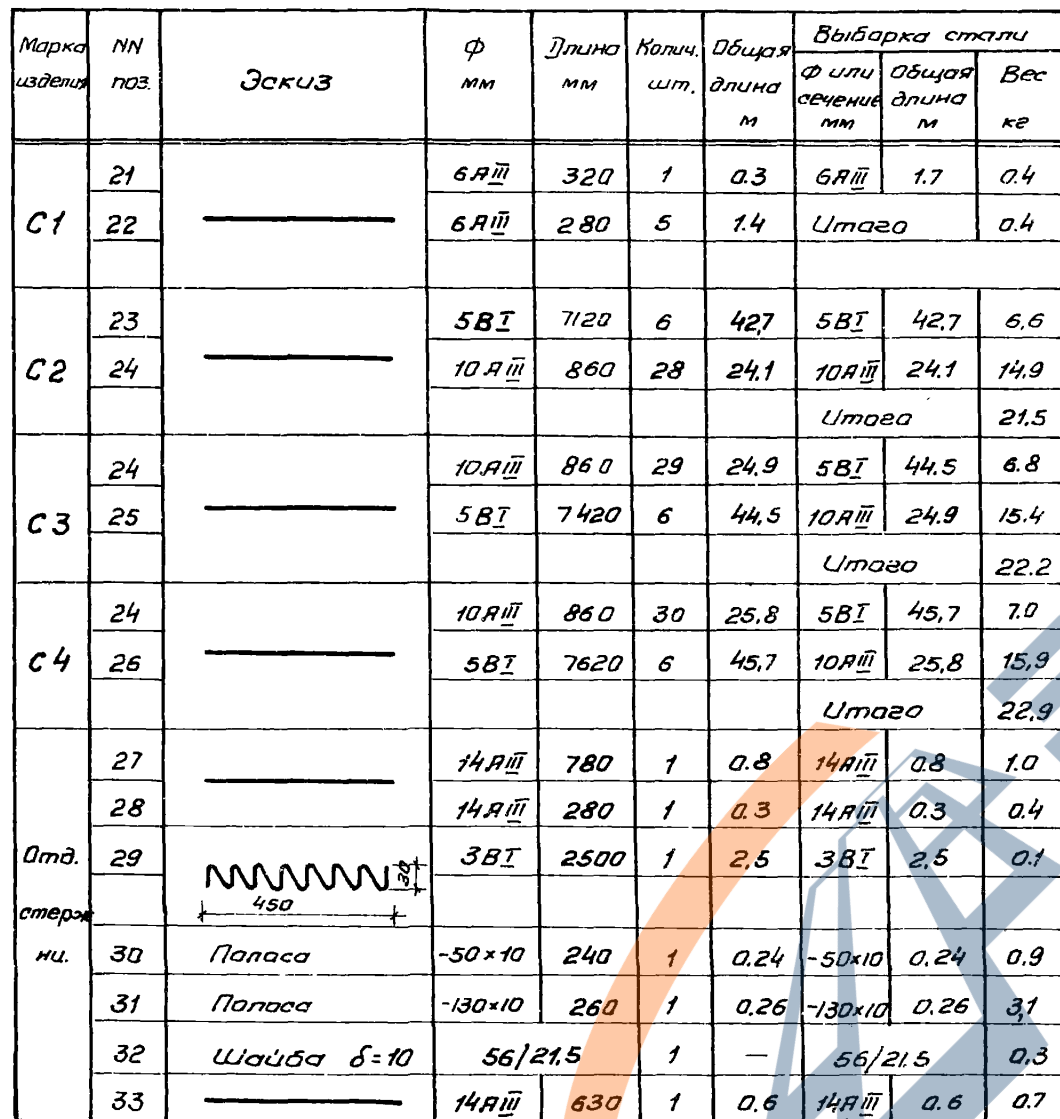 Марка изделия NN поз. Эскиз Ф мм Длина мм Колич. шт. Общая длина м Выборка стали
Ф или сечение мм Общая длина м Вес кг
С1 21 6АIII 320 1 0.3 6АIII 1.7 0.4
22 6АIII 280 5 1.4 Итого 0.4
С2 23 5ВI 7120 6 42,7 5ВI 42.7 6,6
24 10АIII 860 28 24.1 10АIII 24.1 14.9
Итого 21.5
С3 24 10АIII 860 29 24.9 5ВI 44.5 6.8
25 5ВI 7420 6 44,5 10АIII 24.9 15.4
Итого 22.2
С4 24 10АIII 860 30 25.8 5ВI 45,7 7.0
26 5ВI 7620 6 45,7 10АIII 25,8 15,9
Итого 22,9
Отд. стержни. 27 14АIII 780 1 0.8 14АIII 0.8 1.0
28 14АIII 280 1 0.3 14АIII 0.3 0.4
29 450 30 3ВI 2500 1 2,5 3ВI 2,5 0.1
30 Полоса -50×10 240 1 0.24 -50×10 0.24 0.9
31 Полоса -130×10 260 1 0.26 -130×10 0.26 3,1
32 Шайба δ=10 56/21.5 1 — 56/21.5 0.3
33 14АIII 630 1 0.6 14АIII 0.6 0.7